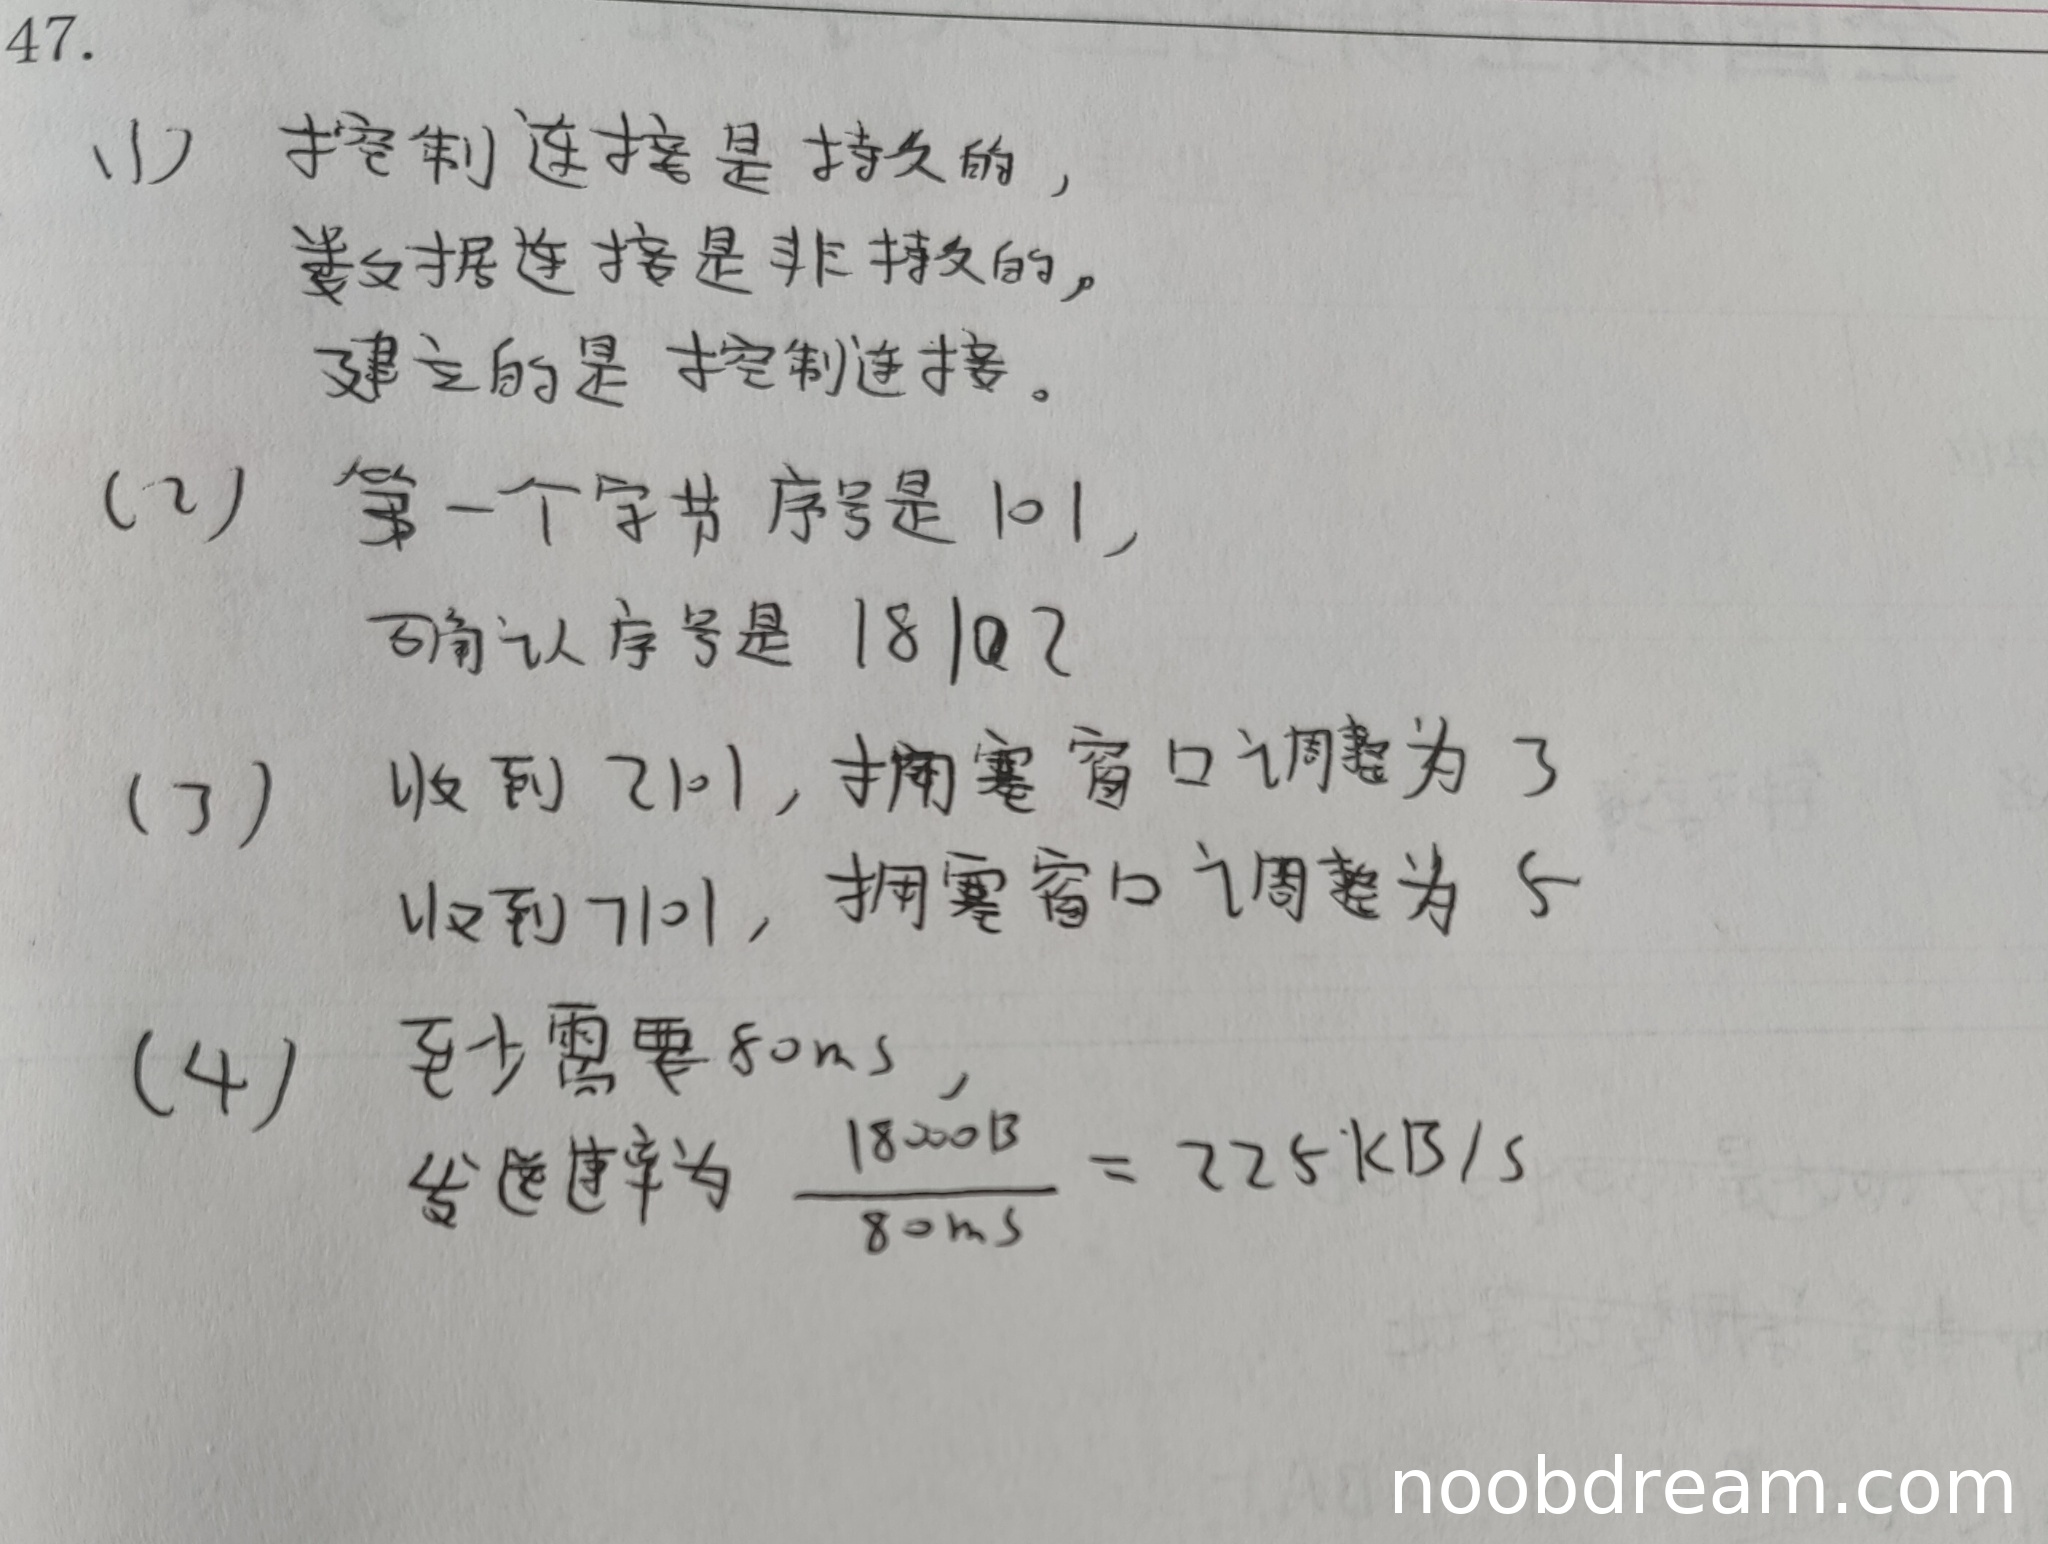 47.
(1) 控制连接是持久的,
数据连接是非持久的。
建立的是控制连接。
(2) 第一个字节序号是 101,
确认序号是 18102
(3) 收到 2101, 拥塞窗口调整为 3
收到 7101, 拥塞窗口调整为 5
(4) 至少需要 80ms,
发送速率为 18000B / 80ms = 225KB/s
noobdream.com